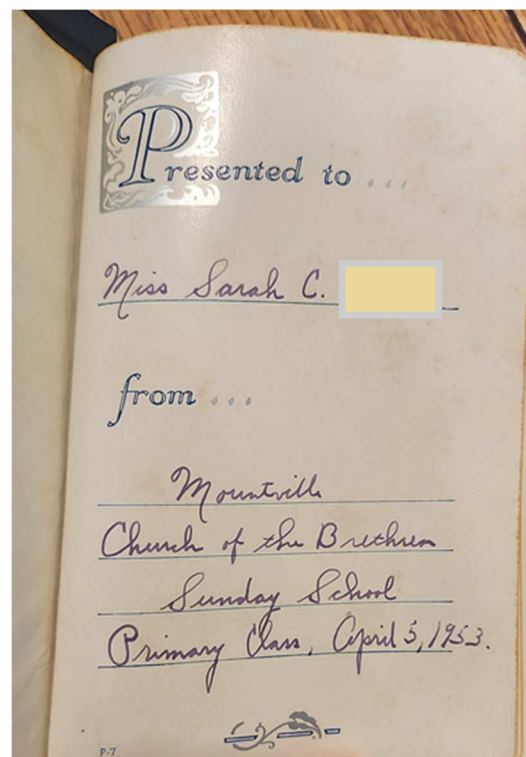 Presented to ...
Miss Sarah C.
from ...
Mountville
Church of the Brethren
Sunday School
Primary Class, April 5, 1953.
P-7